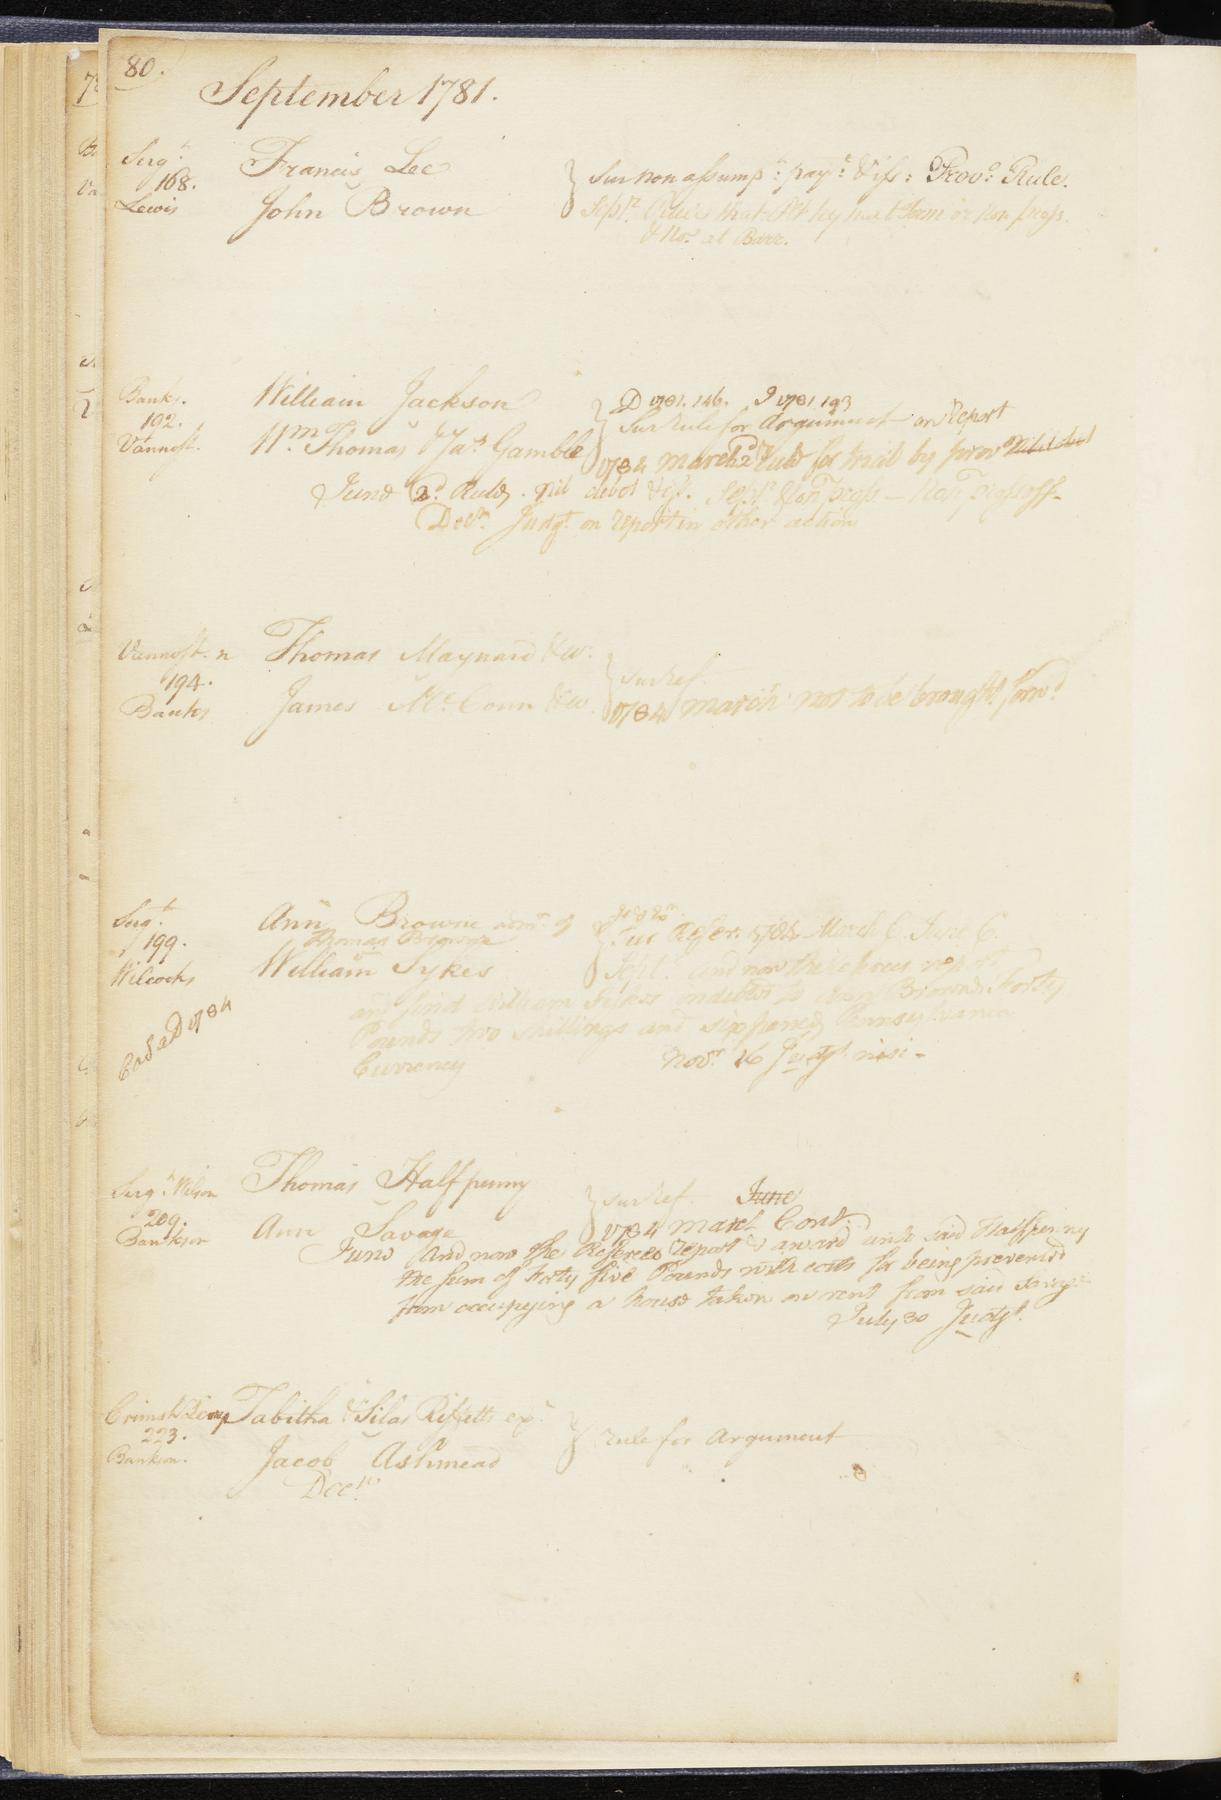 80.
September 1781.
Serg.t Francis Lee Sur non assump.n pay.t & iss: Prov.o Rule.
168.
Lewis John Brown Sept.r Rule that Pl
& No. at Barr.
Banks. William Jackson D 1781. 146. J 1781 193
192. Sur rule for Argument on Report
Vannost. W.m Thomas & Ja.s Gamble 1784 March 2.d Rule for trial by prov.o
June 2.d Rule, nil debet & iss. Sept.r Non pross — Non pross off-
Dec.r Judg.t on report in other action
Vannost. n Thomas Maynard & w.
194. Sur ref.
Banks James McConn & w. 1784 March not to be brought forw.d
Serg.t Ann Browne adm.x of
199. Thomas Browne Sur Refer. 1784 March C. June C.
Wilcocks William Sykes Sept.r and now the referees report
and find William Sykes indebted to Ann Browne Forty
Pounds two shillings and six pence Pennsylvania
Currency Nov.r 16 Judg.t nisi -
Ca sa D 1784
Serg.t Wilson Thomas Halfpenny Sur Ref. June
209. 1784 March Cont.
Bankson Ann Savage
June And now the Referees report & award unto said Halfpenny
the sum of forty five Pounds with costs for being prevented
from occupying a house taken on rent from said Savage
July 30 Judg.t
Tabitha & Silas Ex.
223. rule for Argument
Bankson. Jacob Ashmead
Dec.r